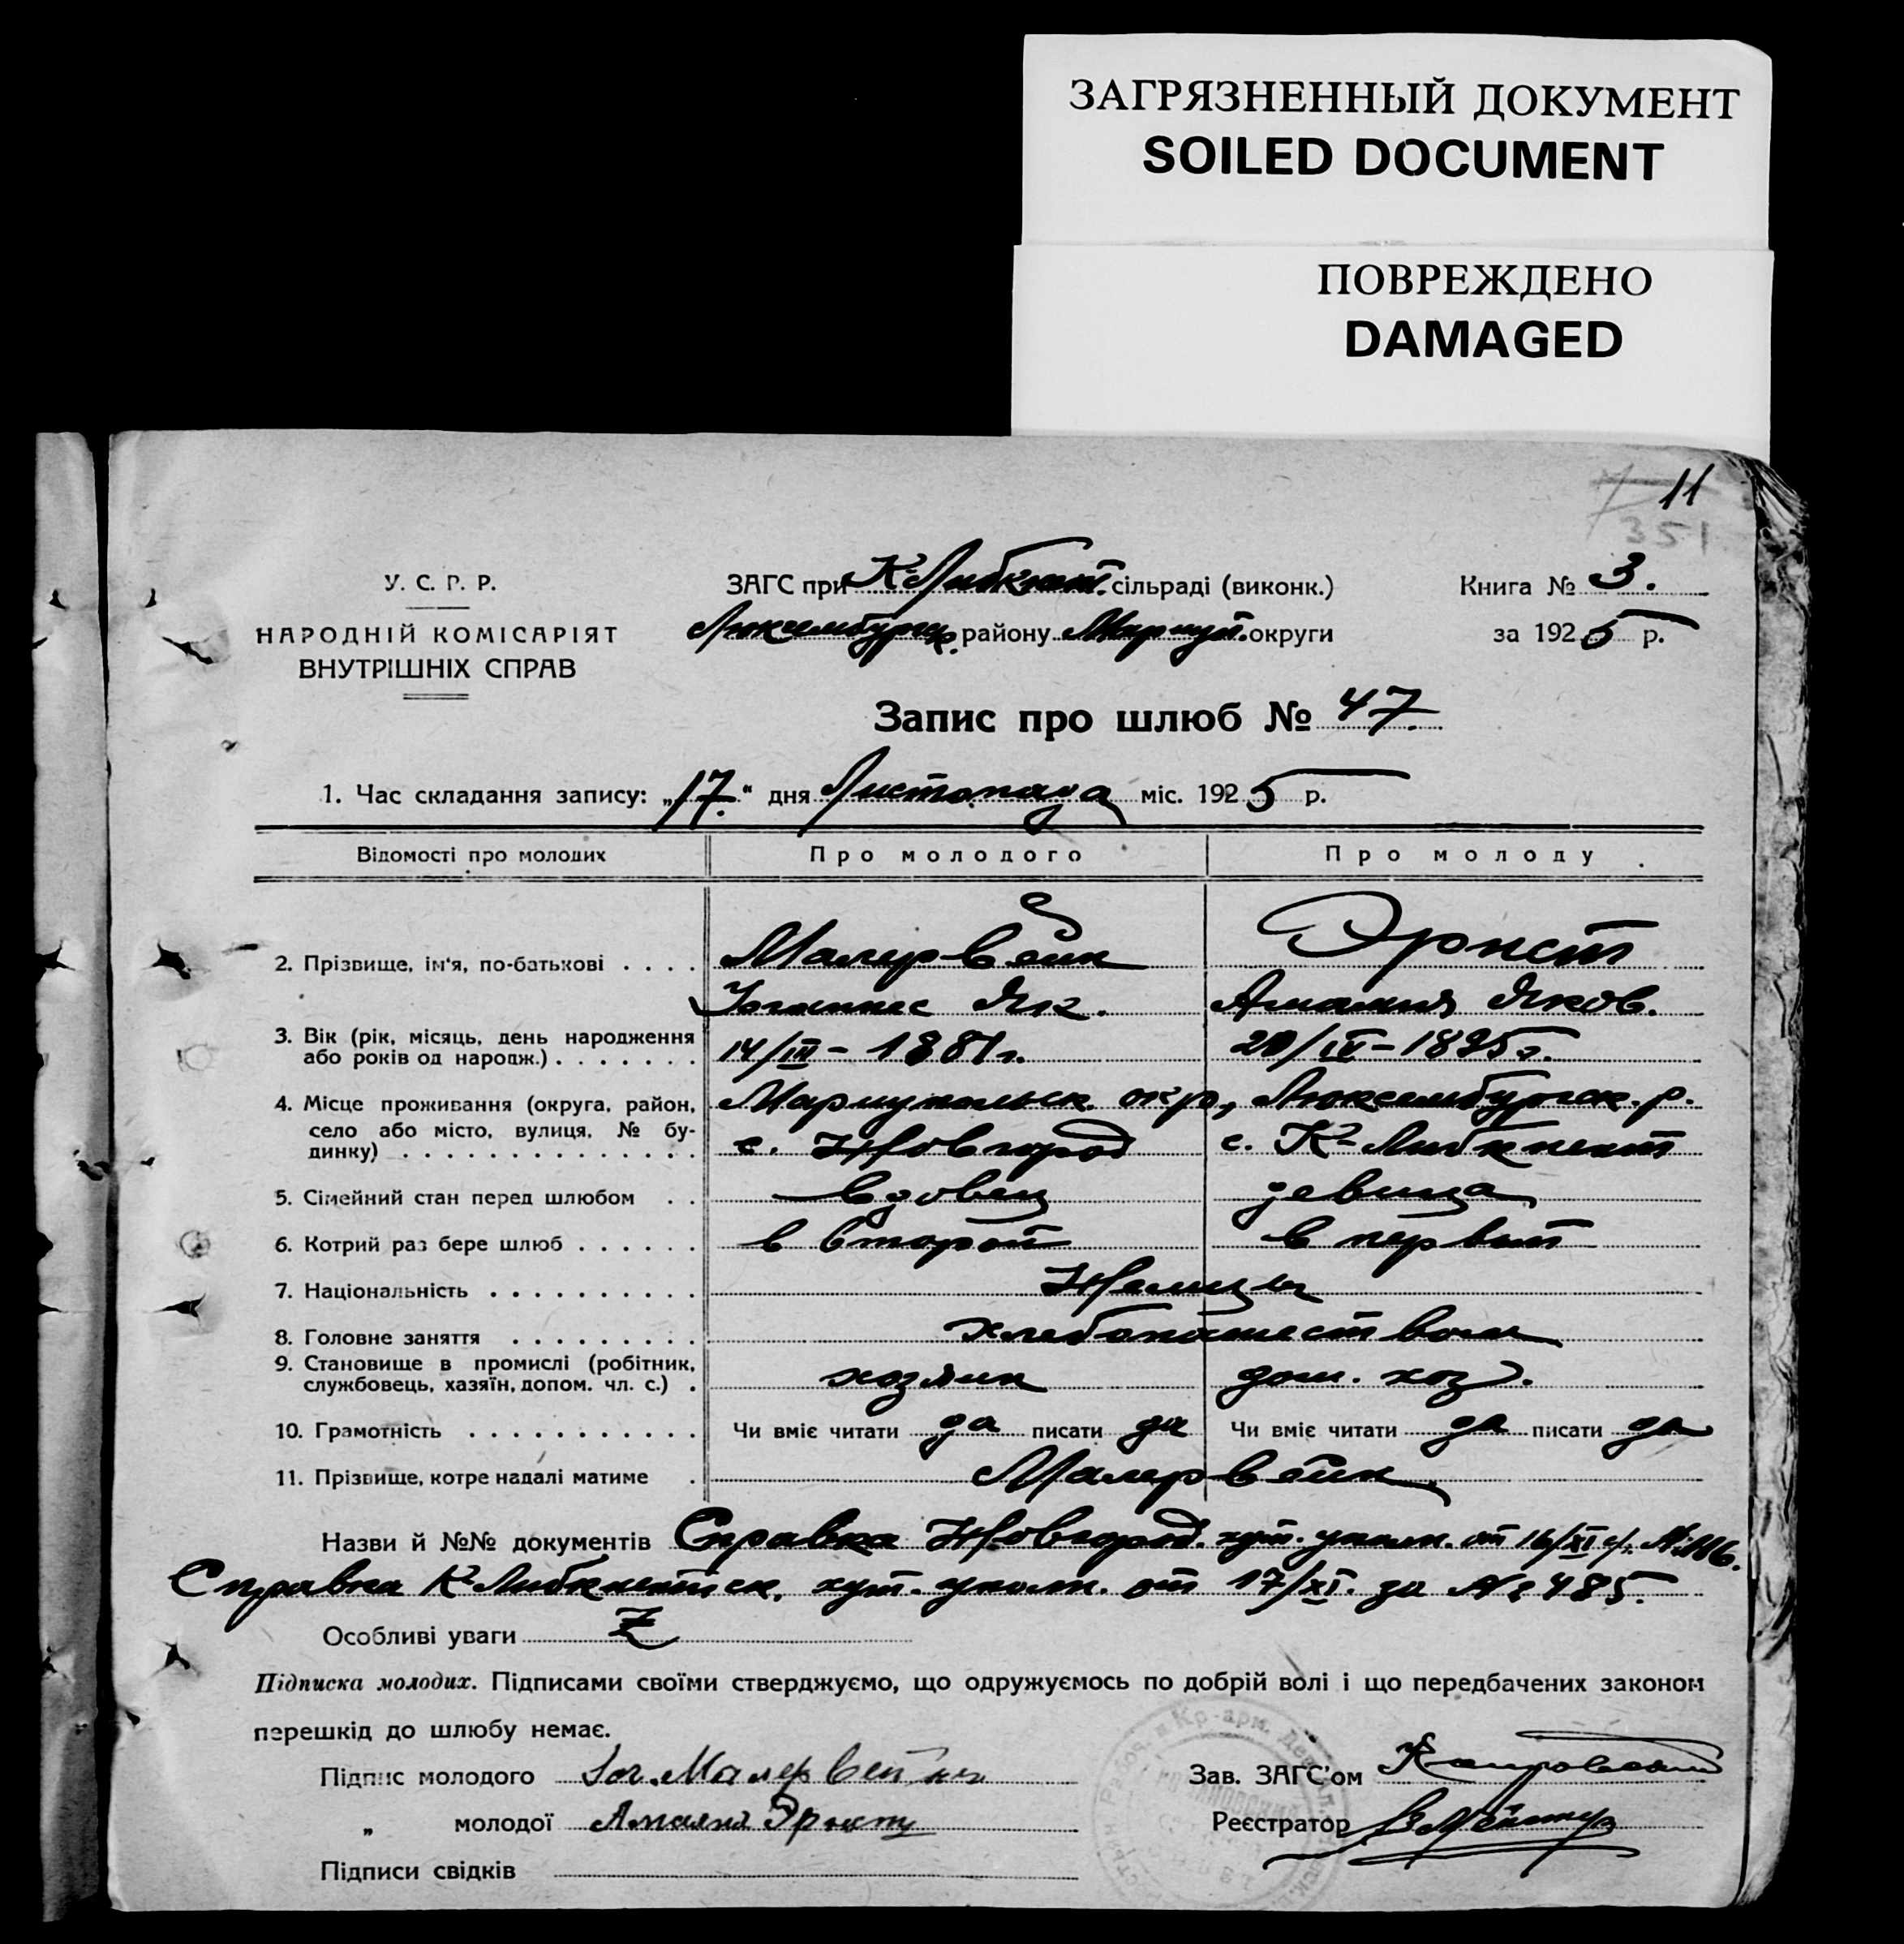 ЗАГРЯЗНЕННЫЙ ДОКУМЕНТ
SOILED DOCUMENT
ПОВРЕЖДЕНО
DAMAGED
11
351
У. С. Р. Р.
НАРОДНІЙ КОМІСАРІЯТ
ВНУТРІШНІХ СПРАВ
ЗАГС при К-Либкнехт. сільраді (виконк.)
Люксембургск. району Мариуп. округи
Книга № 3.
за 1925 р.
Запис про шлюб № 47.
1. Час складання запису: „17." дня Листопада міс. 1925 р.
Відомості про молодих Про молодого Про молоду
2. Прізвище, ім'я, по-батькові . . . . Малервейн Эрнст
Иоганнес Як. Амалия Яков.
3. Вік (рік, місяць, день народження або років од народж.) . . . . . . . 14/III – 1881 г. 20/IV – 1895 г.
4. Місце проживання (округа, район, село або місто, вулиця, № будинку) . . . . . . . . . . . . . . Мариупольск. окр., Люксембургск. р.
с. Новгород с. К-Либкнехт
5. Сімейний стан перед шлюбом . . вдовец девица
6. Котрий раз бере шлюб . . . . . . в второй в первый
7. Національність . . . . . . . . . . Немцы
8. Головне заняття . . . . . . . . . хлебопашеством
9. Становище в промислі (робітник, службовець, хазяїн, допом. чл. с.) . хозяин дом. хоз.
10. Грамотність . . . . . . . . . . . Чи вміє читати да писати да Чи вміє читати да писати да
11. Прізвище, котре надалі матиме . Малервейн.
Назви й №№ документів Справка Новгород. хут. уполн. от 16/XI с/г. №
Справка К-Либкнехтск. хут. уполн. от 17/XI. за № 485.
Особливі уваги Z
Підписка молодих. Підписами своїми стверджуємо, що одружуємось по добрій волі і що передбачених законом
перешкід до шлюбу немає.
Підпис молодого Іог. Малервейн
„ молодої Амалия Эрнст
Підписи свідків
Зав. ЗАГС'ом
Реєстратор